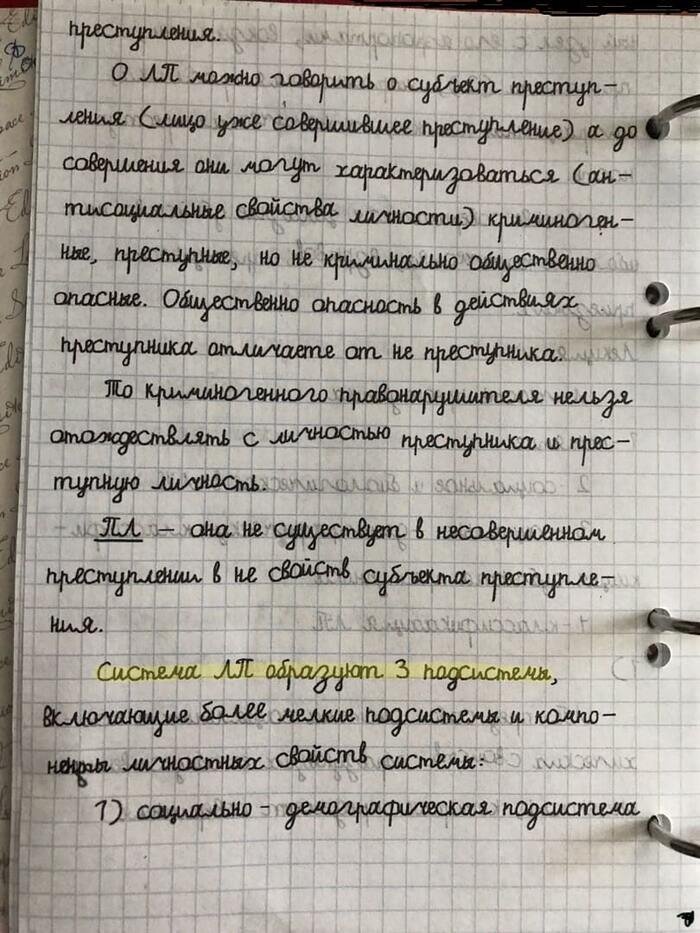 преступления.
О ЛП можно говорить о субъект преступ-
ления (лицо уже совершившее преступление) а до
совершения они могут характеризоваться (ан-
тисоциальные свойства личности) криминоген-
ные, преступные, но не криминально общественно
опасные. Общественно опасность в действиях
преступника отличаете от не преступника.
То криминогенного правонарушителя нельзя
отождествлять с личностью преступника и прес-
тупную личность.
ПЛ – она не существует в несовершенном
преступлении в не свойств субъекта преступле-
ния.
Система ЛП образуют 3 подсистемы,
включающие более мелкие подсистемы и компо-
ненты личностных свойств системы:
1) социально - демографическая подсистема